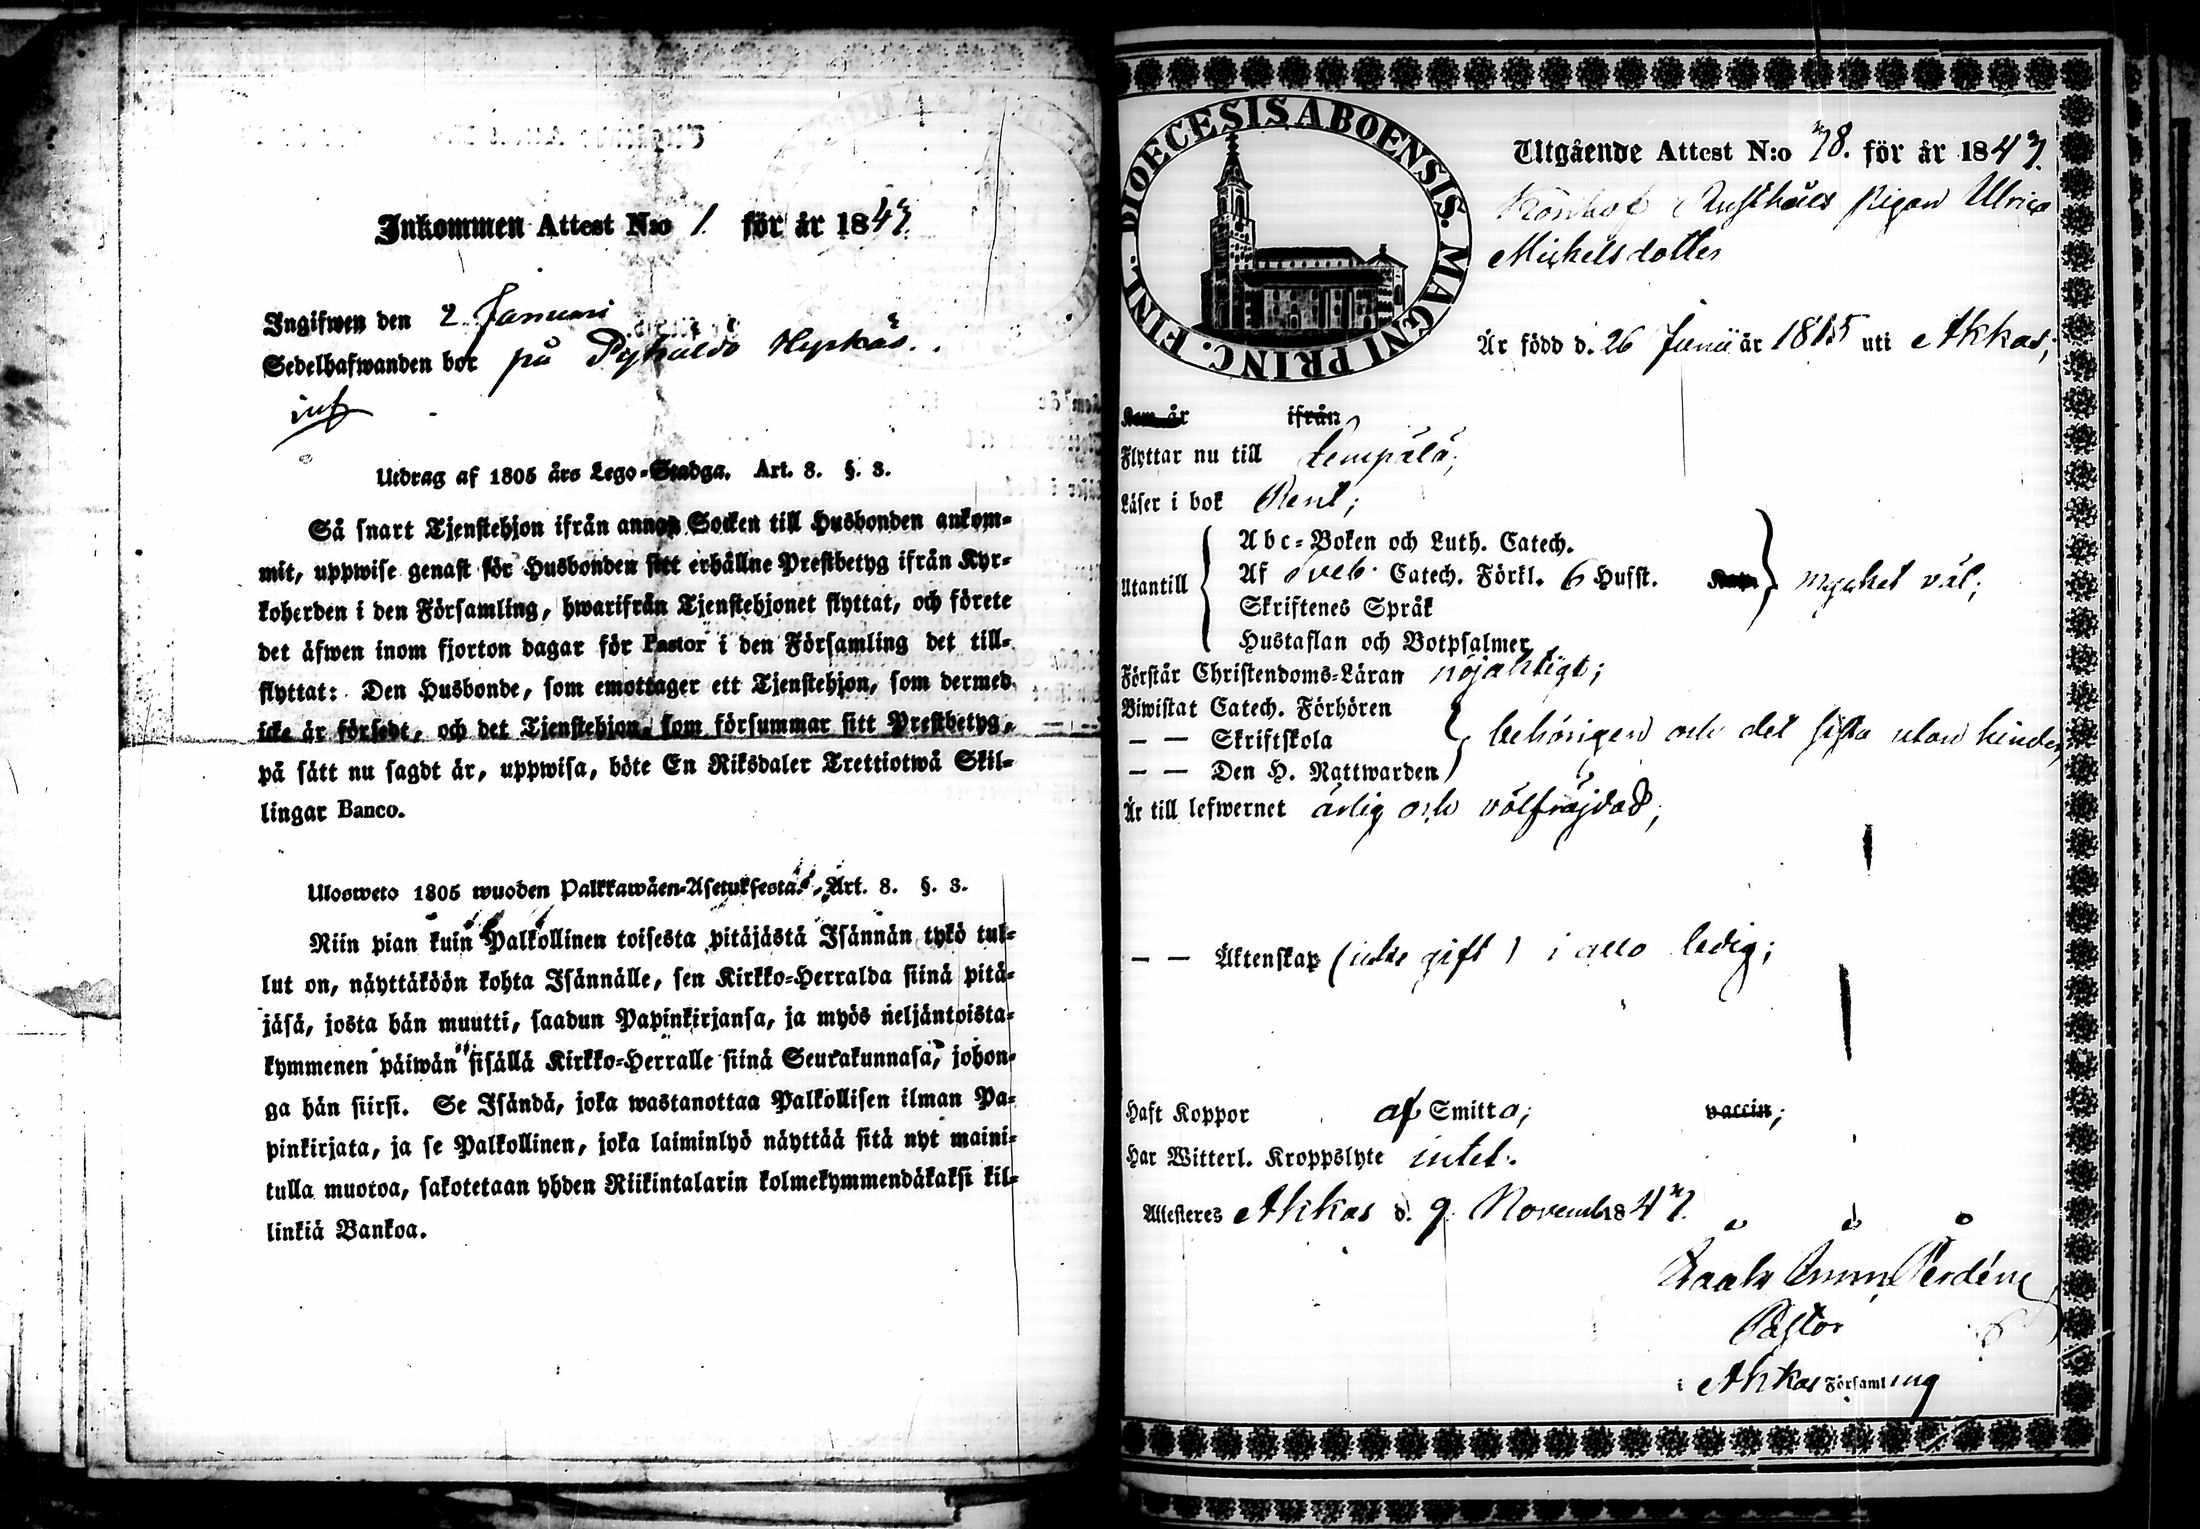 Inkommen Attest N:o 1 för år 1847.
Ingifwen den 2 Januari
Sedelhafwanden bor på Hyrkäs.
Utdrag af 1805 års Lego-Stadga. Art. 8. §. 3.
Så snart Tjenstehjon ifrån annan Socken till Husbonden ankom-
mit, uppwise genast för Husbonden sitt erhållne Prestbetyg ifrån Kyr-
koherden i den Församling, hwarifrån Tjenstehjonet flyttat, och förete
det äfwen inom fjorton dagar för Pastor i den Församling det till-
flyttat: Den Husbonde, som emottager ett Tjenstehjon, som dermed
icke är försedt, och det Tjenstehjon, som försummar sitt Prestbetyg,
på sätt nu sagdt är, uppwisa, böte En Riksdaler Trettiotwå Skil-
lingar Banco.
Ulosweto 1805 wuoden Palkkawäen-Asetuksesta. Art. 8. §. 3.
Niin pian kuin Palkollinen toisesta pitäjästä Isännän tykö tul-
lut on, näyttäköön kohta Isännälle, sen Kirkko-Herralda siinä pitä-
jäsä, josta hän muutti, saadun Papinkirjansa, ja myös neljäntoista-
kymmenen päiwän sisällä Kirkko-Herralle siinä Seurakunnasa, johon-
ga hän siirsi. Se Isändä, joka wastanottaa Palkollisen ilman Pa-
pinkirjata, ja se Palkollinen, joka laiminlyö näyttää sitä nyt maini-
tulla muotoa, sakotetaan yhden Riikintalarin kolmekymmendäkaksi kil-
linkiä Bankoa.
DIOECESIS ABOENSIS. MAGNI PRINC. FINL.
Utgående Attest N:o 78. för år 1847.
Rusthåls pigan Ulrica
Michelsdotter
Är född d. 26 Junii år 1815 uti Akkas;
Kom år ifrån
Flyttar nu till Lempälä;
Läser i bok Rent;
Utantill
Abc-Boken och Luth. Catech.
Af Sveb. Catech. Förkl. 6 Hufst.
Skriftenes Språk
Hustaflan och Botpsalmer
mycket väl;
Förstår Christendoms-Läran nöjaktigt;
Biwistat Catech. Förhören
— — Skriftskola
— — Den H. Nattwarden
behörigen och det sista utan hinder,
Är till lefwernet ärlig och välfräjdad;
— — Äktenskap (icke gift) i allo ledig;
Haft Koppor af Smitta; vaccin;
Har Witterl. Kroppslyte intet.
Attesteres Akkas d. 9 Novemb. 1847.
Pastor
i Akkas Församling